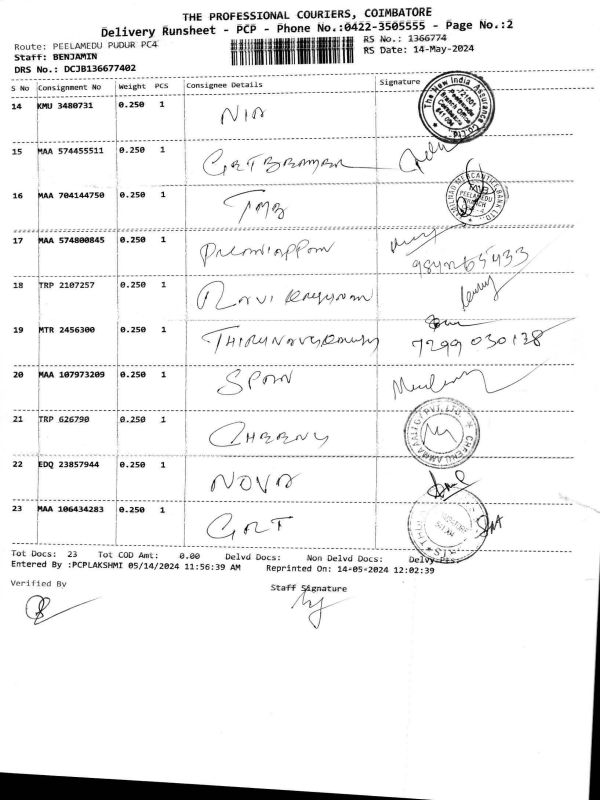 THE PROFESSIONAL COURIERS, COIMBATORE
Delivery Runsheet - PCP - Phone No.:0422-3505555 - Page No.:2
Route: PEELAMEDU PUDUR PC4 RS No.: 1366774
Staff: BENJAMIN RS Date: 14-May-2024
DRS No.: DCJB136677402
S No Consignment No Weight PCS Consignee Details Signature
14 KMU 3480731 0.250 1 NIA
The New India Assurance Co. Ltd.
15 MAA 574455511 0.250 1
16 MAA 704144750 0.250 1 TMB
TAMILNAD MERCANTILE BANK LTD.
PEELAMEDU
BRANCH
17 MAA 574800845 0.250 1
9842265433
18 TRP 2107257 0.250 1 RAVI
19 MTR 2456300 0.250 1
7299 030138
20 MAA 107973209 0.250 1
21 TRP 626790 0.250 1 CHEENU
22 EDQ 23857944 0.250 1 NOVA
23 MAA 106434283 0.250 1 GRT
Tot Docs: 23 Tot COD Amt: 0.00 Delvd Docs: Non Delvd Docs: Delvy Pts:
Entered By :PCPLAKSHMI 05/14/2024 11:56:39 AM Reprinted On: 14-05-2024 12:02:39
Verified By Staff Signature